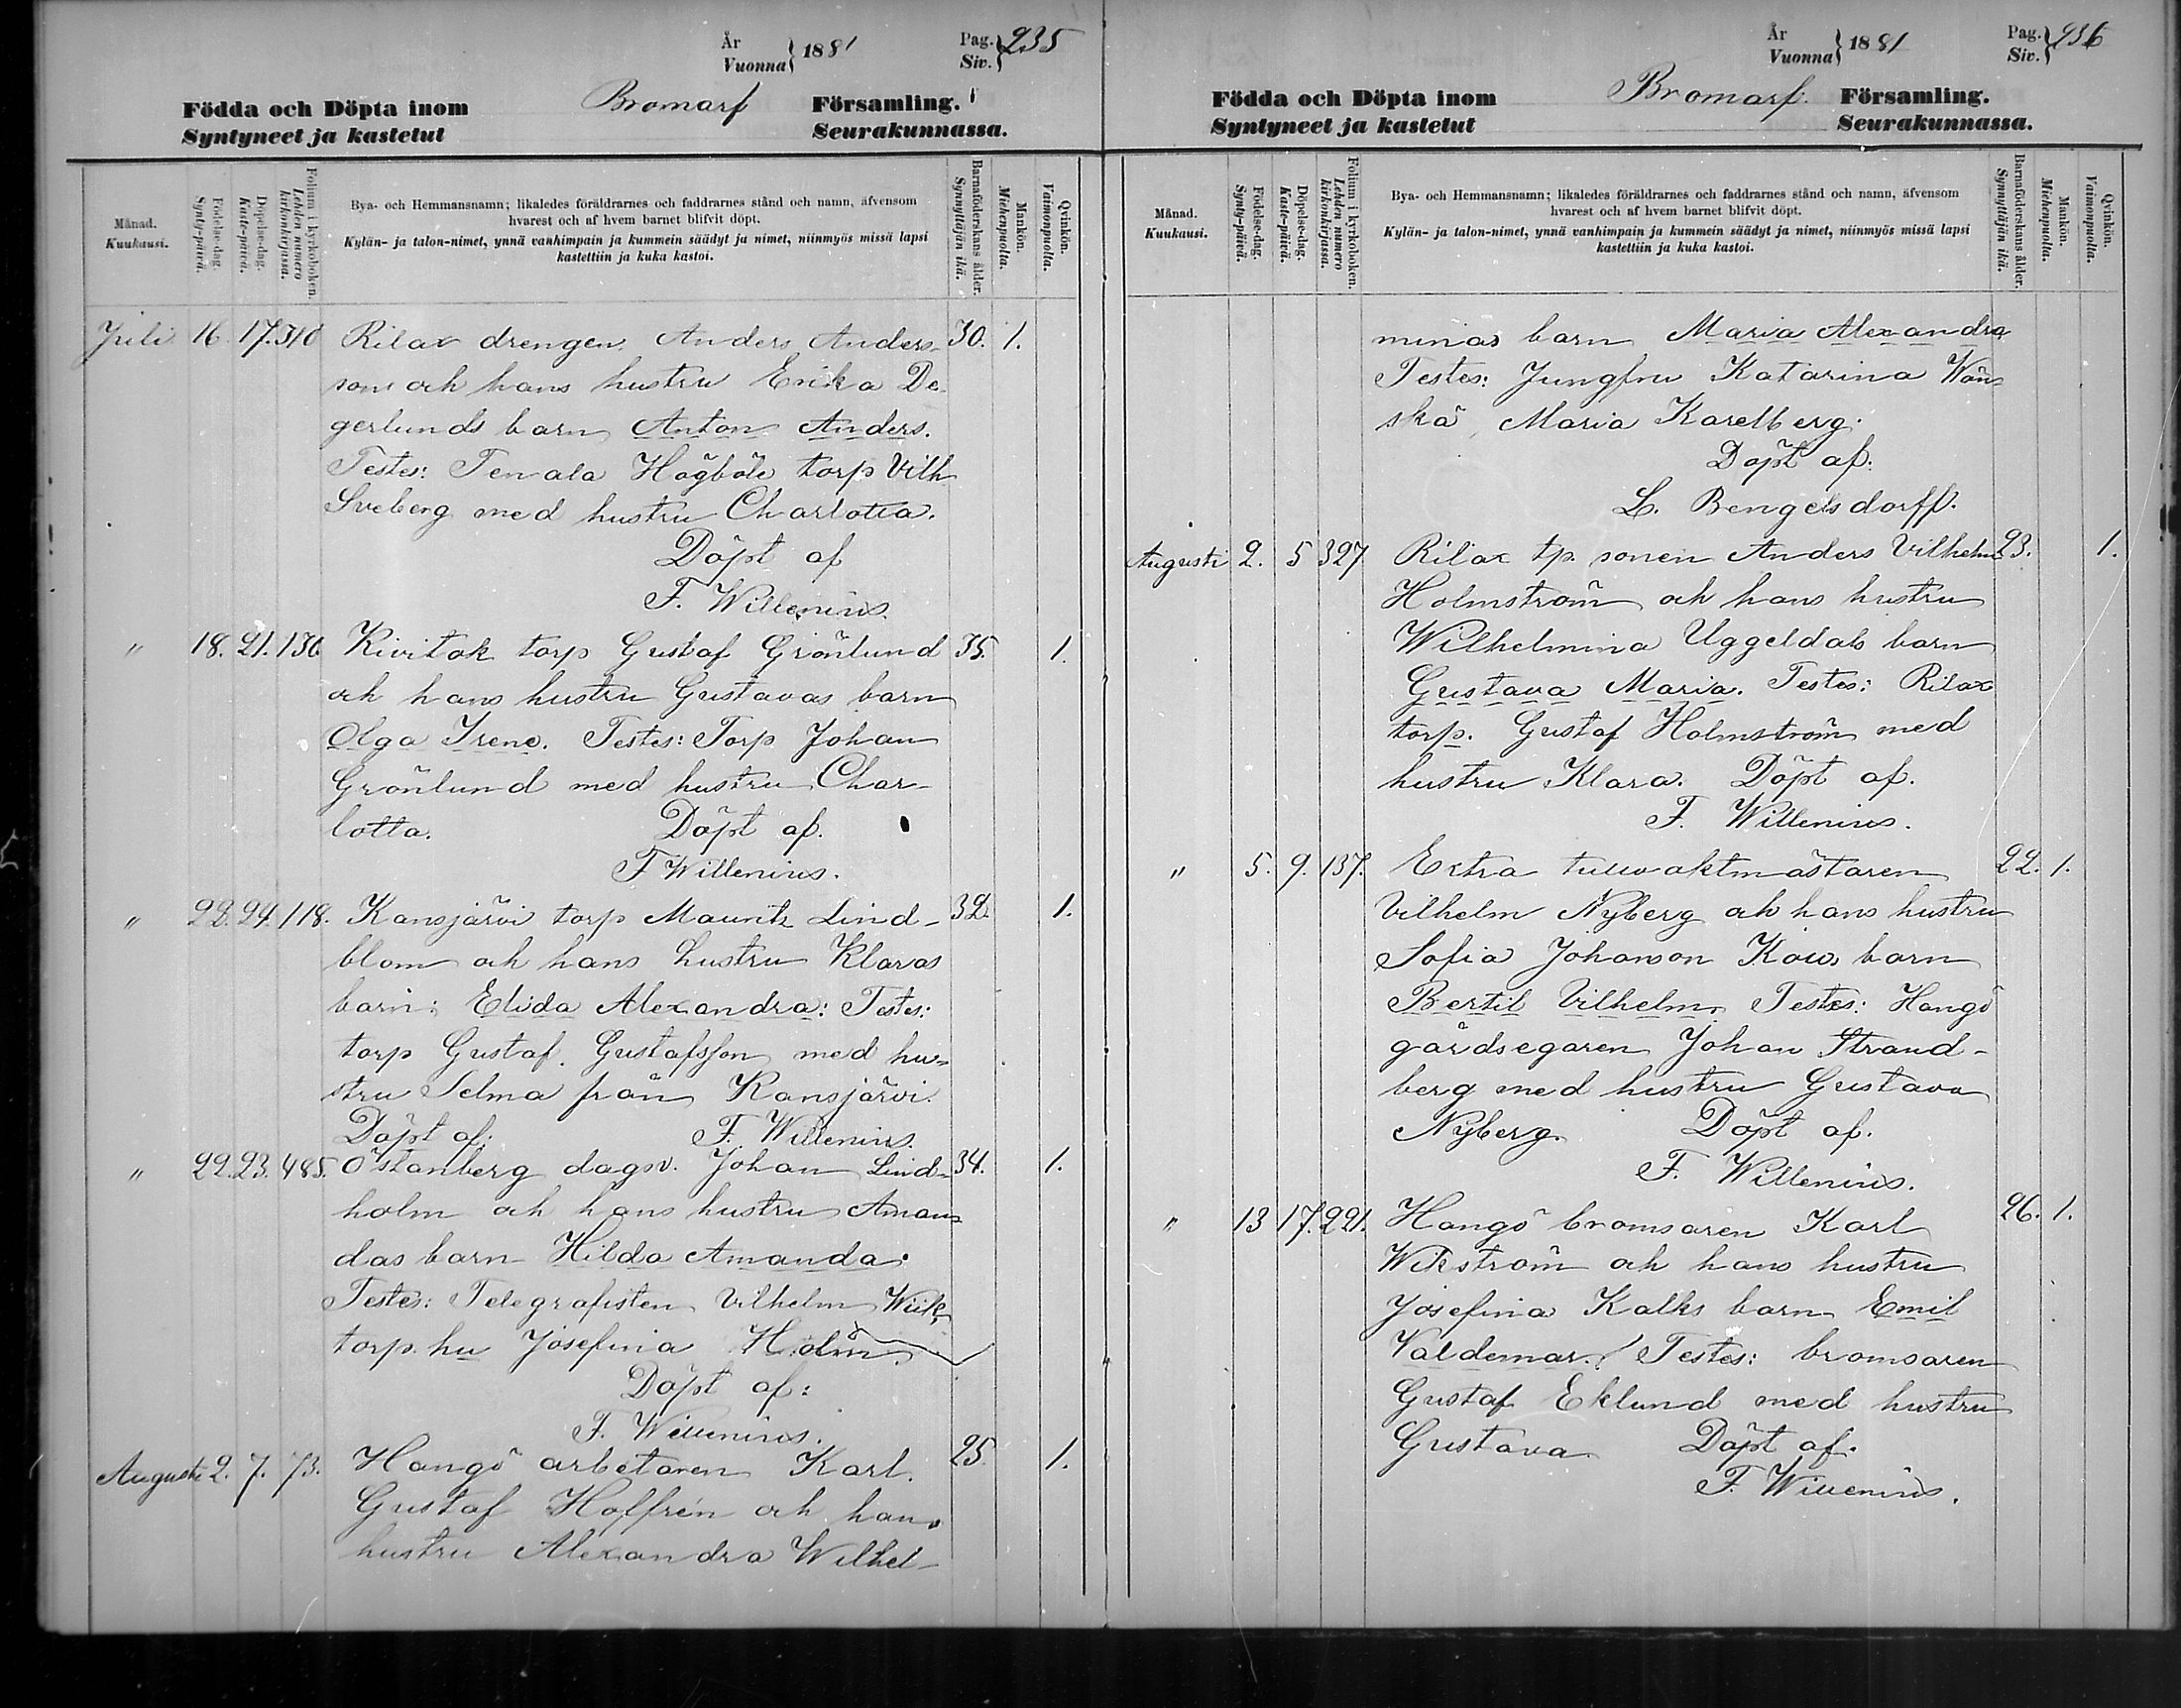 År
Vuonna } 1881
Pag.
Siv. } 235
Födda och Döpta inom Bromarf Församling.
Syntyneet ja kastetut Seurakunnassa.
Månad.
Kuukausi.
Födelse-dag.
Synty-päivä.
Döpelse-dag.
Kaste-päivä.
Folium i kyrkoboken.
Lehden numero
kirkonkirjassa.
Bya- och Hemmansnamn; likaledes föräldrarnes och faddrarnes stånd och namn, äfvensom
hvarest och af hvem barnet blifvit döpt.
Kylän- ja talon-nimet, ynnä vanhimpain ja kummein säädyt ja nimet, niinmyös missä lapsi
kastettiin ja kuka kastoi.
Barnaföderskans ålder.
Synnyttäjän ikä.
Mankön.
Miehenpuolta.
Qvinkön.
Vaimonpuolta.
Juli 16. 17. 310 Rilax drengen Anders Anders- 30. 1.
son och hans hustru Erika De-
gerlunds barn Anton Anders.
Testes: Tenala Högböle torp Vilh
Sveberg med hustru Charlotta.
Döpt af
F. Willenius.
" 18. 21. 136 Kivitok torp Gustaf Grönlund 35. 1.
och hans hustru Gustavas barn
Olga Irene. Testes: Torp Johan
Grönlund med hustru Char-
lotta. Döpt af.
F Willenius.
" 22. 24. 118. Kansjärvi torp Mauritz Lind- 32. 1.
blom och hans hustru Klaras
barn: Elida Alexandra: Testes:
torp Gustaf. Gustafsson med hu-
stru Selma från Kansjärvi.
Döpt af: F. Willenius.
" 22. 23. 485. Östanberg dagsv. Johan Lind- 34. 1.
holm och hans hustru Aman-
das barn Hilda Amanda:
Testes: Telegrafisten Vilhelm Wiik,
torp. hu Josefina Holm.
Döpt af:
F. Willenius.
Augusti 2. 7. 73. Hangö arbetaren Karl. 25. 1.
Gustaf Hoffrén och hans
hustru Alexandra Wilhel-
År
Vuonna } 1881
Pag.
Siv. } 236
Födda och Döpta inom Bromarf. Församling.
Syntyneet ja kastetut Seurakunnassa.
Månad.
Kuukausi.
Födelse-dag.
Synty-päivä.
Döpelse-dag.
Kaste-päivä.
Folium i kyrkoboken.
Lehden numero
kirkonkirjassa.
Bya- och Hemmansnamn; likaledes föräldrarnes och faddrarnes stånd och namn, äfvensom
hvarest och af hvem barnet blifvit döpt.
Kylän- ja talon-nimet, ynnä vanhimpain ja kummein säädyt ja nimet, niinmyös missä lapsi
kastettiin ja kuka kastoi.
Barnaföderskans ålder.
Synnyttäjän ikä.
Mankön.
Miehenpuolta.
Qvinkön.
Vaimonpuolta.
minas barn Maria Alexandra
Testes: Jungfru Katarina Wän-
skä, Maria Karelberg.
Döpt af:
L. Bengelsdorff.
Augusti 2. 5 327 Rilax tp. sonen Anders Vilhelm 23. 1.
Holmström och hans hustru
Wilhelmina Uggeldals barn
Gustava Maria. Testes: Rilax
torp. Gustaf Holmström med
hustru Klara. Döpt af.
F. Willenius.
" 5. 9. 137. Extra tullvaktmästaren 22. 1.
Vilhelm Nyberg och hans hustru
Sofia Johanson Kows barn
Bertil Vilhelm. Testes: Hangö
gårdsegaren Johan Strand-
berg med hustru Gustava
Nyberg. Döpt af.
F. Willenius.
" 13 17. 221. Hangö bromsaren Karl 26. 1.
Wikström och hans hustru
Josefina Kalks barn Emil
Valdemar. Testes: bromsaren
Gustaf Eklund med hustru
Gustava Döpt af.
F. Willenius.